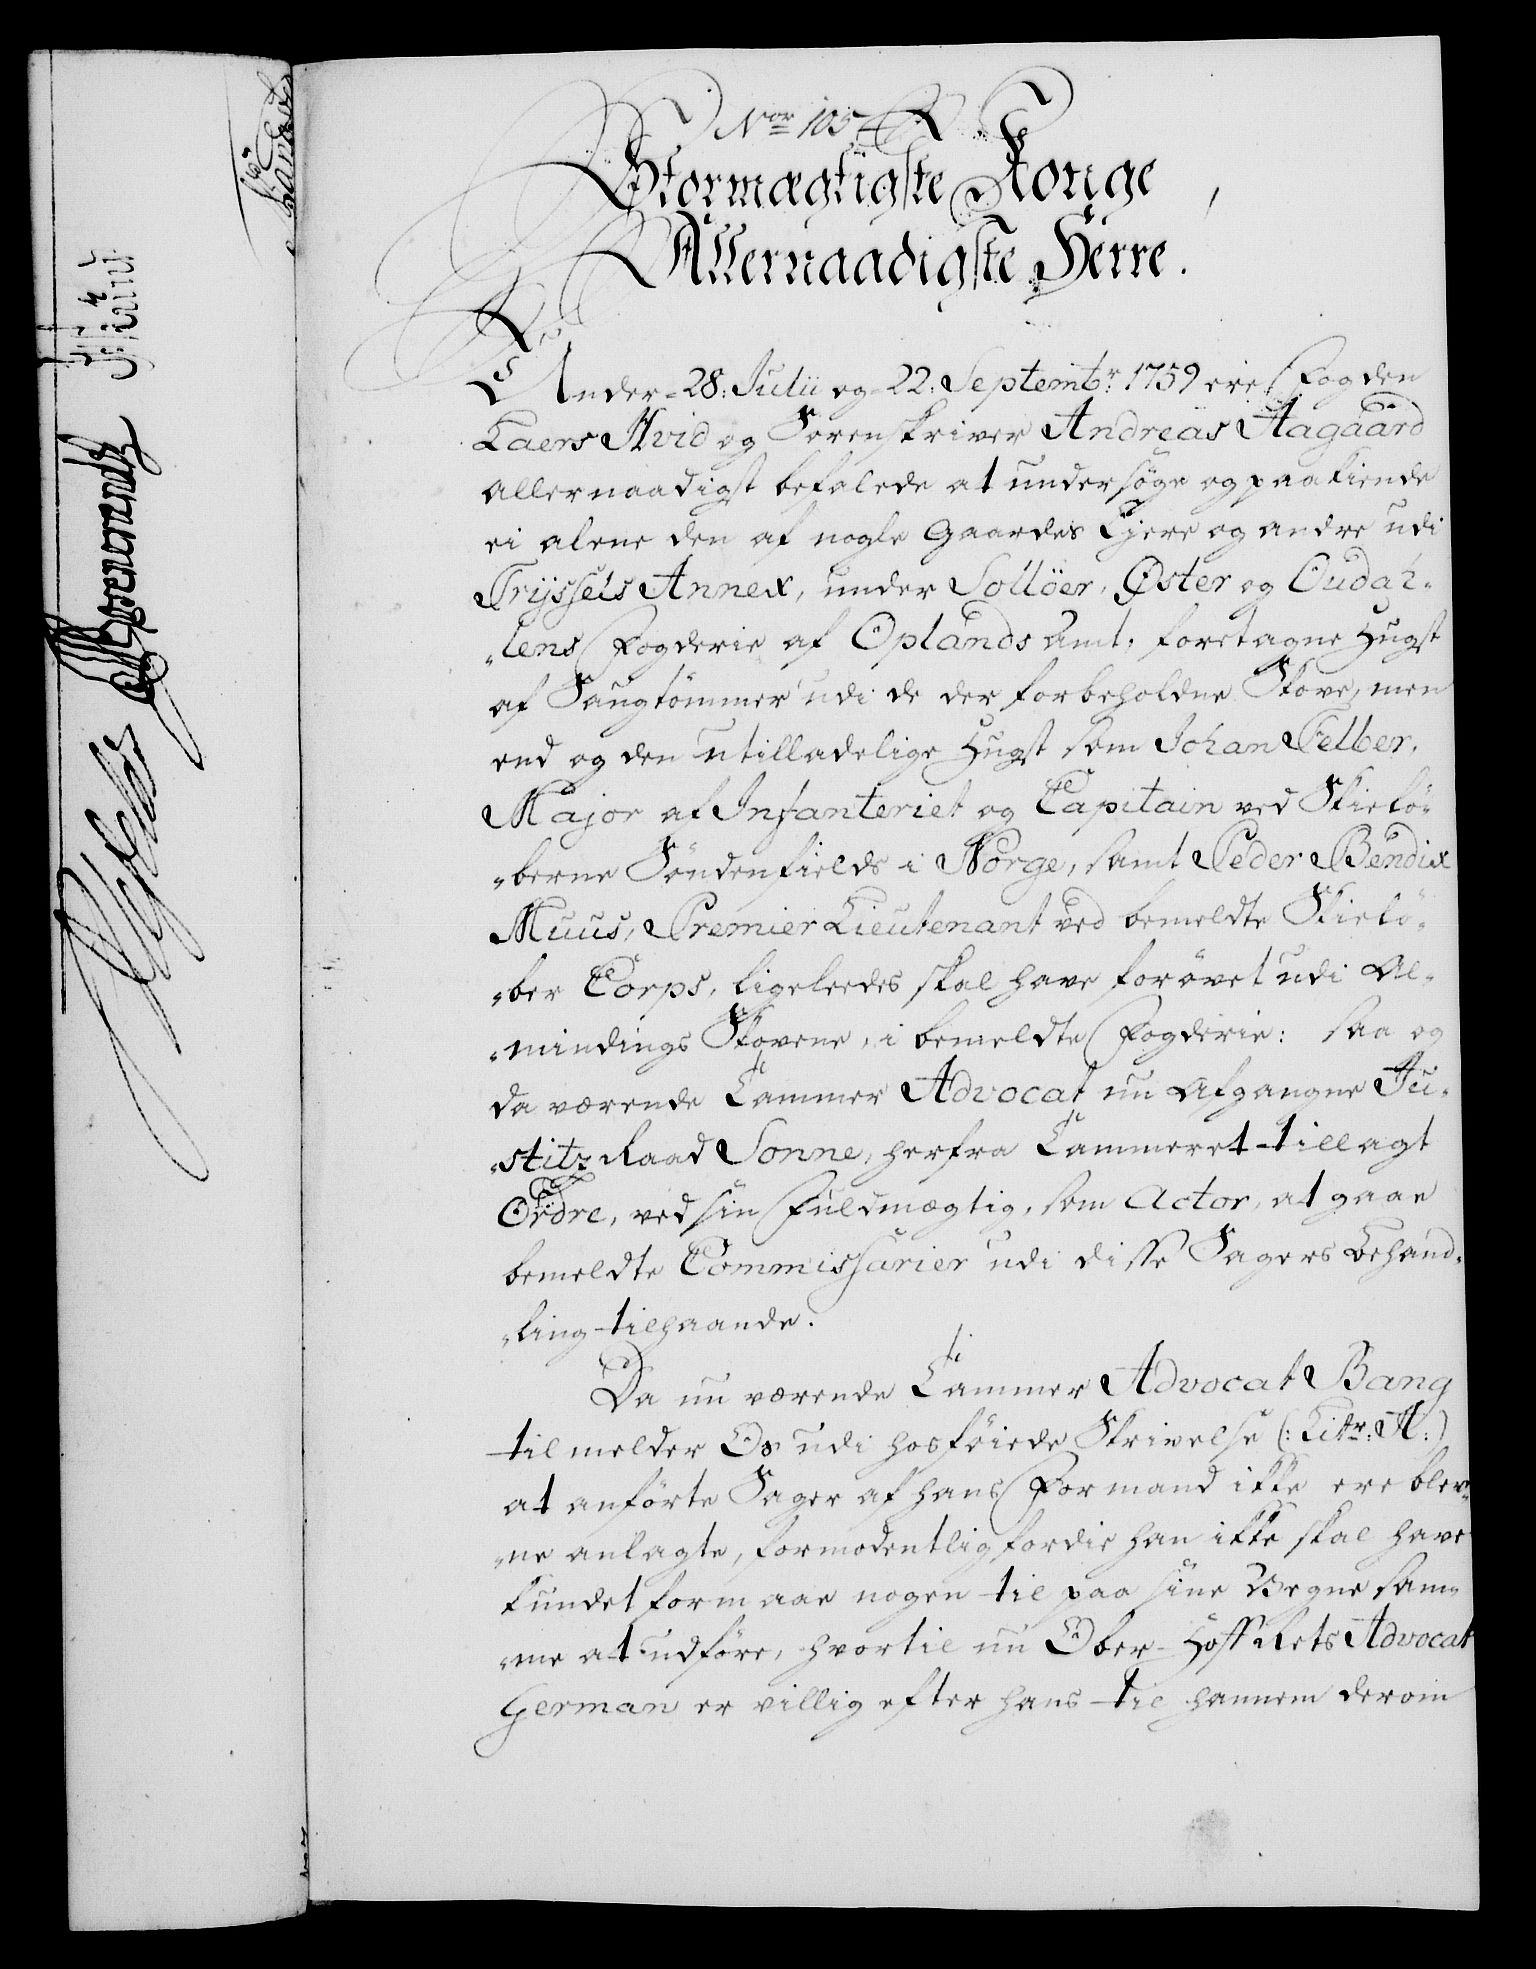 Nor 105.
Stormægtigste Konge,
Allernaadigste Herre.
Under 28: Julii og 22: Septembr: 1759 ere Fogden
Laers Hvid og Sorenskriver Andreas Aagaard
allernaadigst befalede at undersøge og paakiende
ei alene den af nogle Gaardes Ejere og andre udi
Tryssels Annex, under Sollöer, Øster og Oudah-
"lens Fogderie af Oplands Amt, foretagne Hugst
af Saugtömmer udi de der forbeholdne Skove, men
end og den utilladelige Hugst som Johan Felber,
Major af Infanteriet og Capitain ved Skielö-
"berne Söndenfields i Norge, samt Peder Bendix
Muus, Premier Lieutenant ved bemeldte Skielö-
"ber Corps, ligeledes skal have forövet udi Al-
"mindings Skovene, i bemeldte Fogderie: saa og
da værende Cammer Advocat nu afgangne Ju-
"stitz Raad Sonne, herfra Cammeret tillagt
Ordre, ved sin Fuldmægtig, som Actor, at gaae
bemeldte Commissarier udi disse Sagers Behand-
"ling tilhaande.
Da nu værende Cammer Advocat Bang
tilmelder Os udi hosföiede Skrivelse (: Litr: A:)
at anförte Sager af hans Formand ikke ere blev-
"ne anlagte, formodentlig fordie han ikke skal have
kundet formaae nogen til paa sine Vegne sam-
"me at udföre, hvortil nu Ober-Hoff Rets Advocat
German er villig efter hans til hannem derom